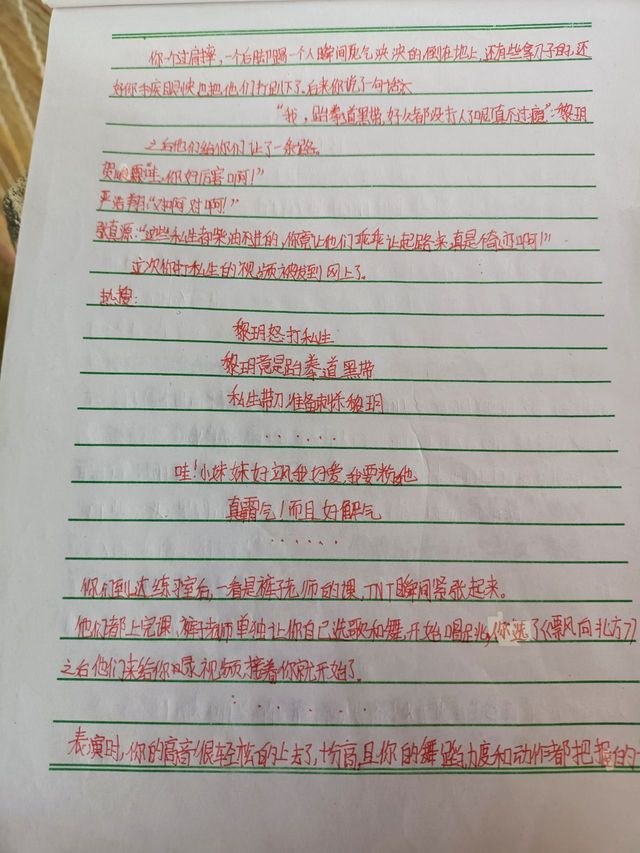 你一个过肩摔，一个后脚踢一个人瞬间死气泱泱的倒在地上，还有些拿刀子的，还
好你手疾眼快也把他们打倒下了。后来你说了一句话：
"我，跆拳道黑带，好久都没打人了呢真不过瘾"·黎玥
之后他们给你们让了一条路。
贺峻霖："哇，你好厉害啊！"
严浩翔："对啊对啊！"
张真源："这些私生都柴油不进的，你竟让他们乖乖让起路来真是奇迹啊！"
这次你打私生的视频被发到网上了。
热搜：
黎玥怒打私生
黎玥竟是跆拳道黑带
私生带刀准备刺杀黎玥
······
哇！小妹妹好飒我好爱，我要粉她
真霸气！而且好解气
······
你们到达练习室后，一看是裤子老师的课，TNT瞬间紧张起来。
他们都上完课，裤子老师单独让你自己选歌和舞，开始唱跳，你选了《飘向北方》
之后他们来给你录视频，接着你就开始了。
······
表演时，你的高音很轻松的上去了，十分高，且你的舞蹈力度和动作都把握的